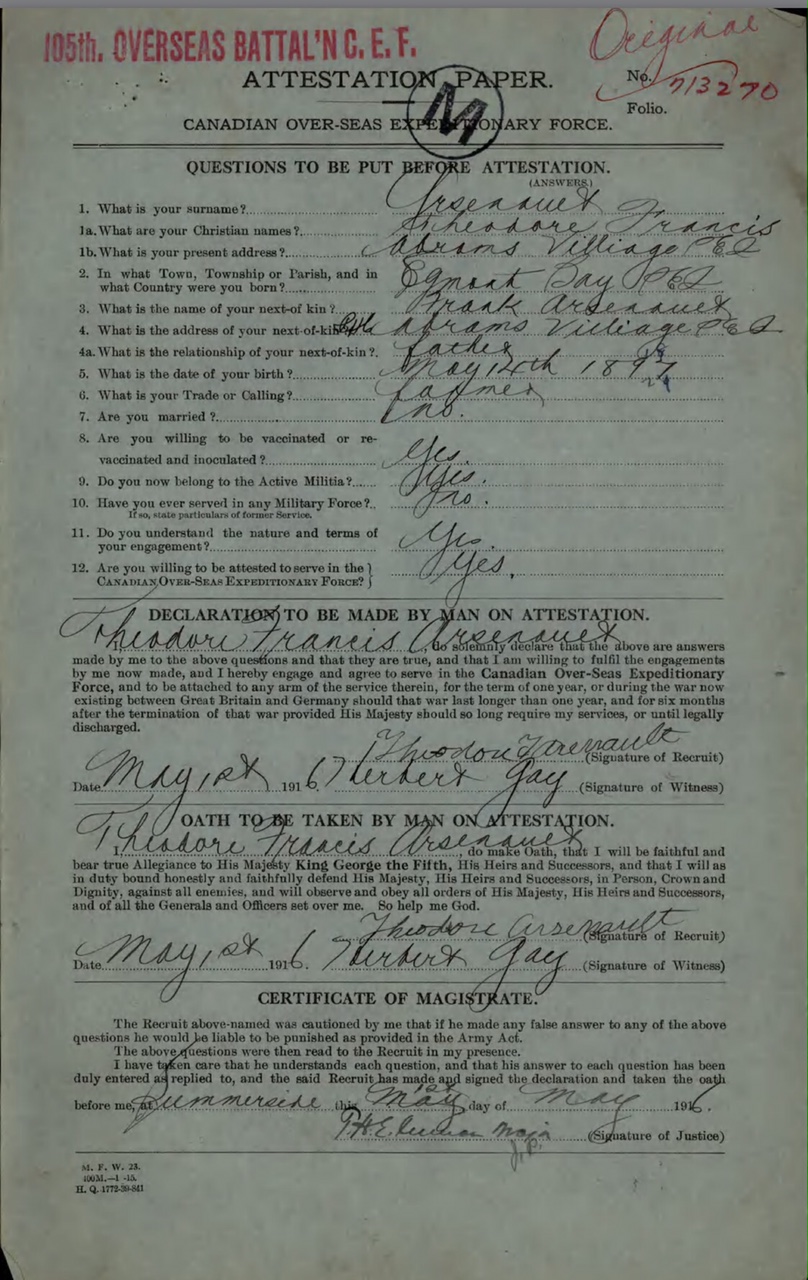 105th. OVERSEAS BATTAL'N C. E. F.
Original
ATTESTATION PAPER.
No. 713270
M
Folio.
CANADIAN OVER-SEAS EXPEDITIONARY FORCE.
QUESTIONS TO BE PUT BEFORE ATTESTATION.
(ANSWERS.)
1. What is your surname? Arsenault
1a. What are your Christian names? Theodore Francis
1b. What is your present address? Abrams Villiage P E I
2. In what Town, Township or Parish, and in
what Country were you born? Egmont Bay P E I
3. What is the name of your next-of kin? Frank Arsenault
4. What is the address of your next-of-kin Abrams Villiage P E I
4a. What is the relationship of your next-of-kin? father
5. What is the date of your birth? May 14th 1897
6. What is your Trade or Calling? farmer
7. Are you married? no.
8. Are you willing to be vaccinated or re-
vaccinated and inoculated? Yes.
9. Do you now belong to the Active Militia? Yes.
10. Have you ever served in any Military Force? no.
If so, state particulars of former Service.
11. Do you understand the nature and terms of
your engagement? Yes.
12. Are you willing to be attested to serve in the }
CANADIAN OVER-SEAS EXPEDITIONARY FORCE? } Yes.
DECLARATION TO BE MADE BY MAN ON ATTESTATION.
I, Theodore Francis Arsenault, do solemnly declare that the above are answers
made by me to the above questions and that they are true, and that I am willing to fulfil the engagements
by me now made, and I hereby engage and agree to serve in the Canadian Over-Seas Expeditionary
Force, and to be attached to any arm of the service therein, for the term of one year, or during the war now
existing between Great Britain and Germany should that war last longer than one year, and for six months
after the termination of that war provided His Majesty should so long require my services, or until legally
discharged.
Theodore Arsenault (Signature of Recruit)
Date May 1st 1916 Herbert Gay (Signature of Witness)
OATH TO BE TAKEN BY MAN ON ATTESTATION.
I, Theodore Francis Arsenault, do make Oath, that I will be faithful and
bear true Allegiance to His Majesty King George the Fifth, His Heirs and Successors, and that I will as
in duty bound honestly and faithfully defend His Majesty, His Heirs and Successors, in Person, Crown and
Dignity, against all enemies, and will observe and obey all orders of His Majesty, His Heirs and Successors,
and of all the Generals and Officers set over me. So help me God.
Theodore Arsenault (Signature of Recruit)
Date May 1st 1916. Herbert Gay (Signature of Witness)
CERTIFICATE OF MAGISTRATE.
The Recruit above-named was cautioned by me that if he made any false answer to any of the above
questions he would be liable to be punished as provided in the Army Act.
The above questions were then read to the Recruit in my presence.
I have taken care that he understands each question, and that his answer to each question has been
duly entered as replied to, and the said Recruit has made and signed the declaration and taken the oath
before me, at Summerside this day of May 1916.
(Signature of Justice)
J.P.
M. F. W. 23.
400M.—1 -15.
H. Q. 1772-39-841